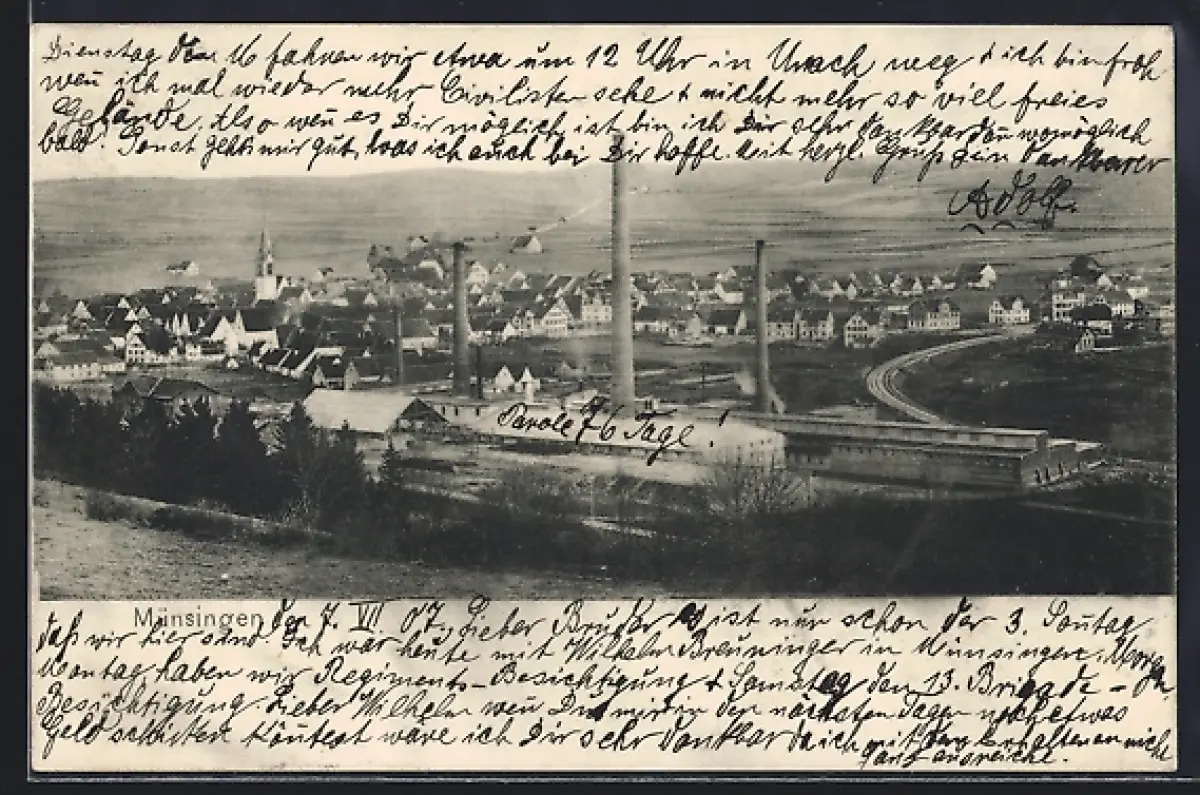 Dienstag den 16 fahren wir etwa um 12 Uhr in Urach weg & ich bin froh
weñ ich mal wieder mehr Civilisten sehe & nicht mehr so viel freies
Gelände. Also weñ es Dir möglich ist bin ich Dir sehr dankbar dañ womöglich
bald. Sonst gehts mir gut, was ich auch bei Dir hoffe. Mit herzl. Gruß Dein dankbarer
Adolf.
Parole 76 Tage!
Münsingen den 7. VII 07. Lieber Bruder es ist nur schon der 3. Soñtag
daß wir hier sind. Ich war heute mit Wilhelm Breuninger in Münsingen. Morge
Montag haben wir Regiments-Besichtigung & Samstag den 13. Brigade-
Besichtigung. Lieber Wilhelm weñ Du mir in den nächsten Tagen noch etwas
Geld schicken köñtest wäre ich Dir sehr dankbar da ich mit dem Erhaltenen nicht
ganz ausreiche.